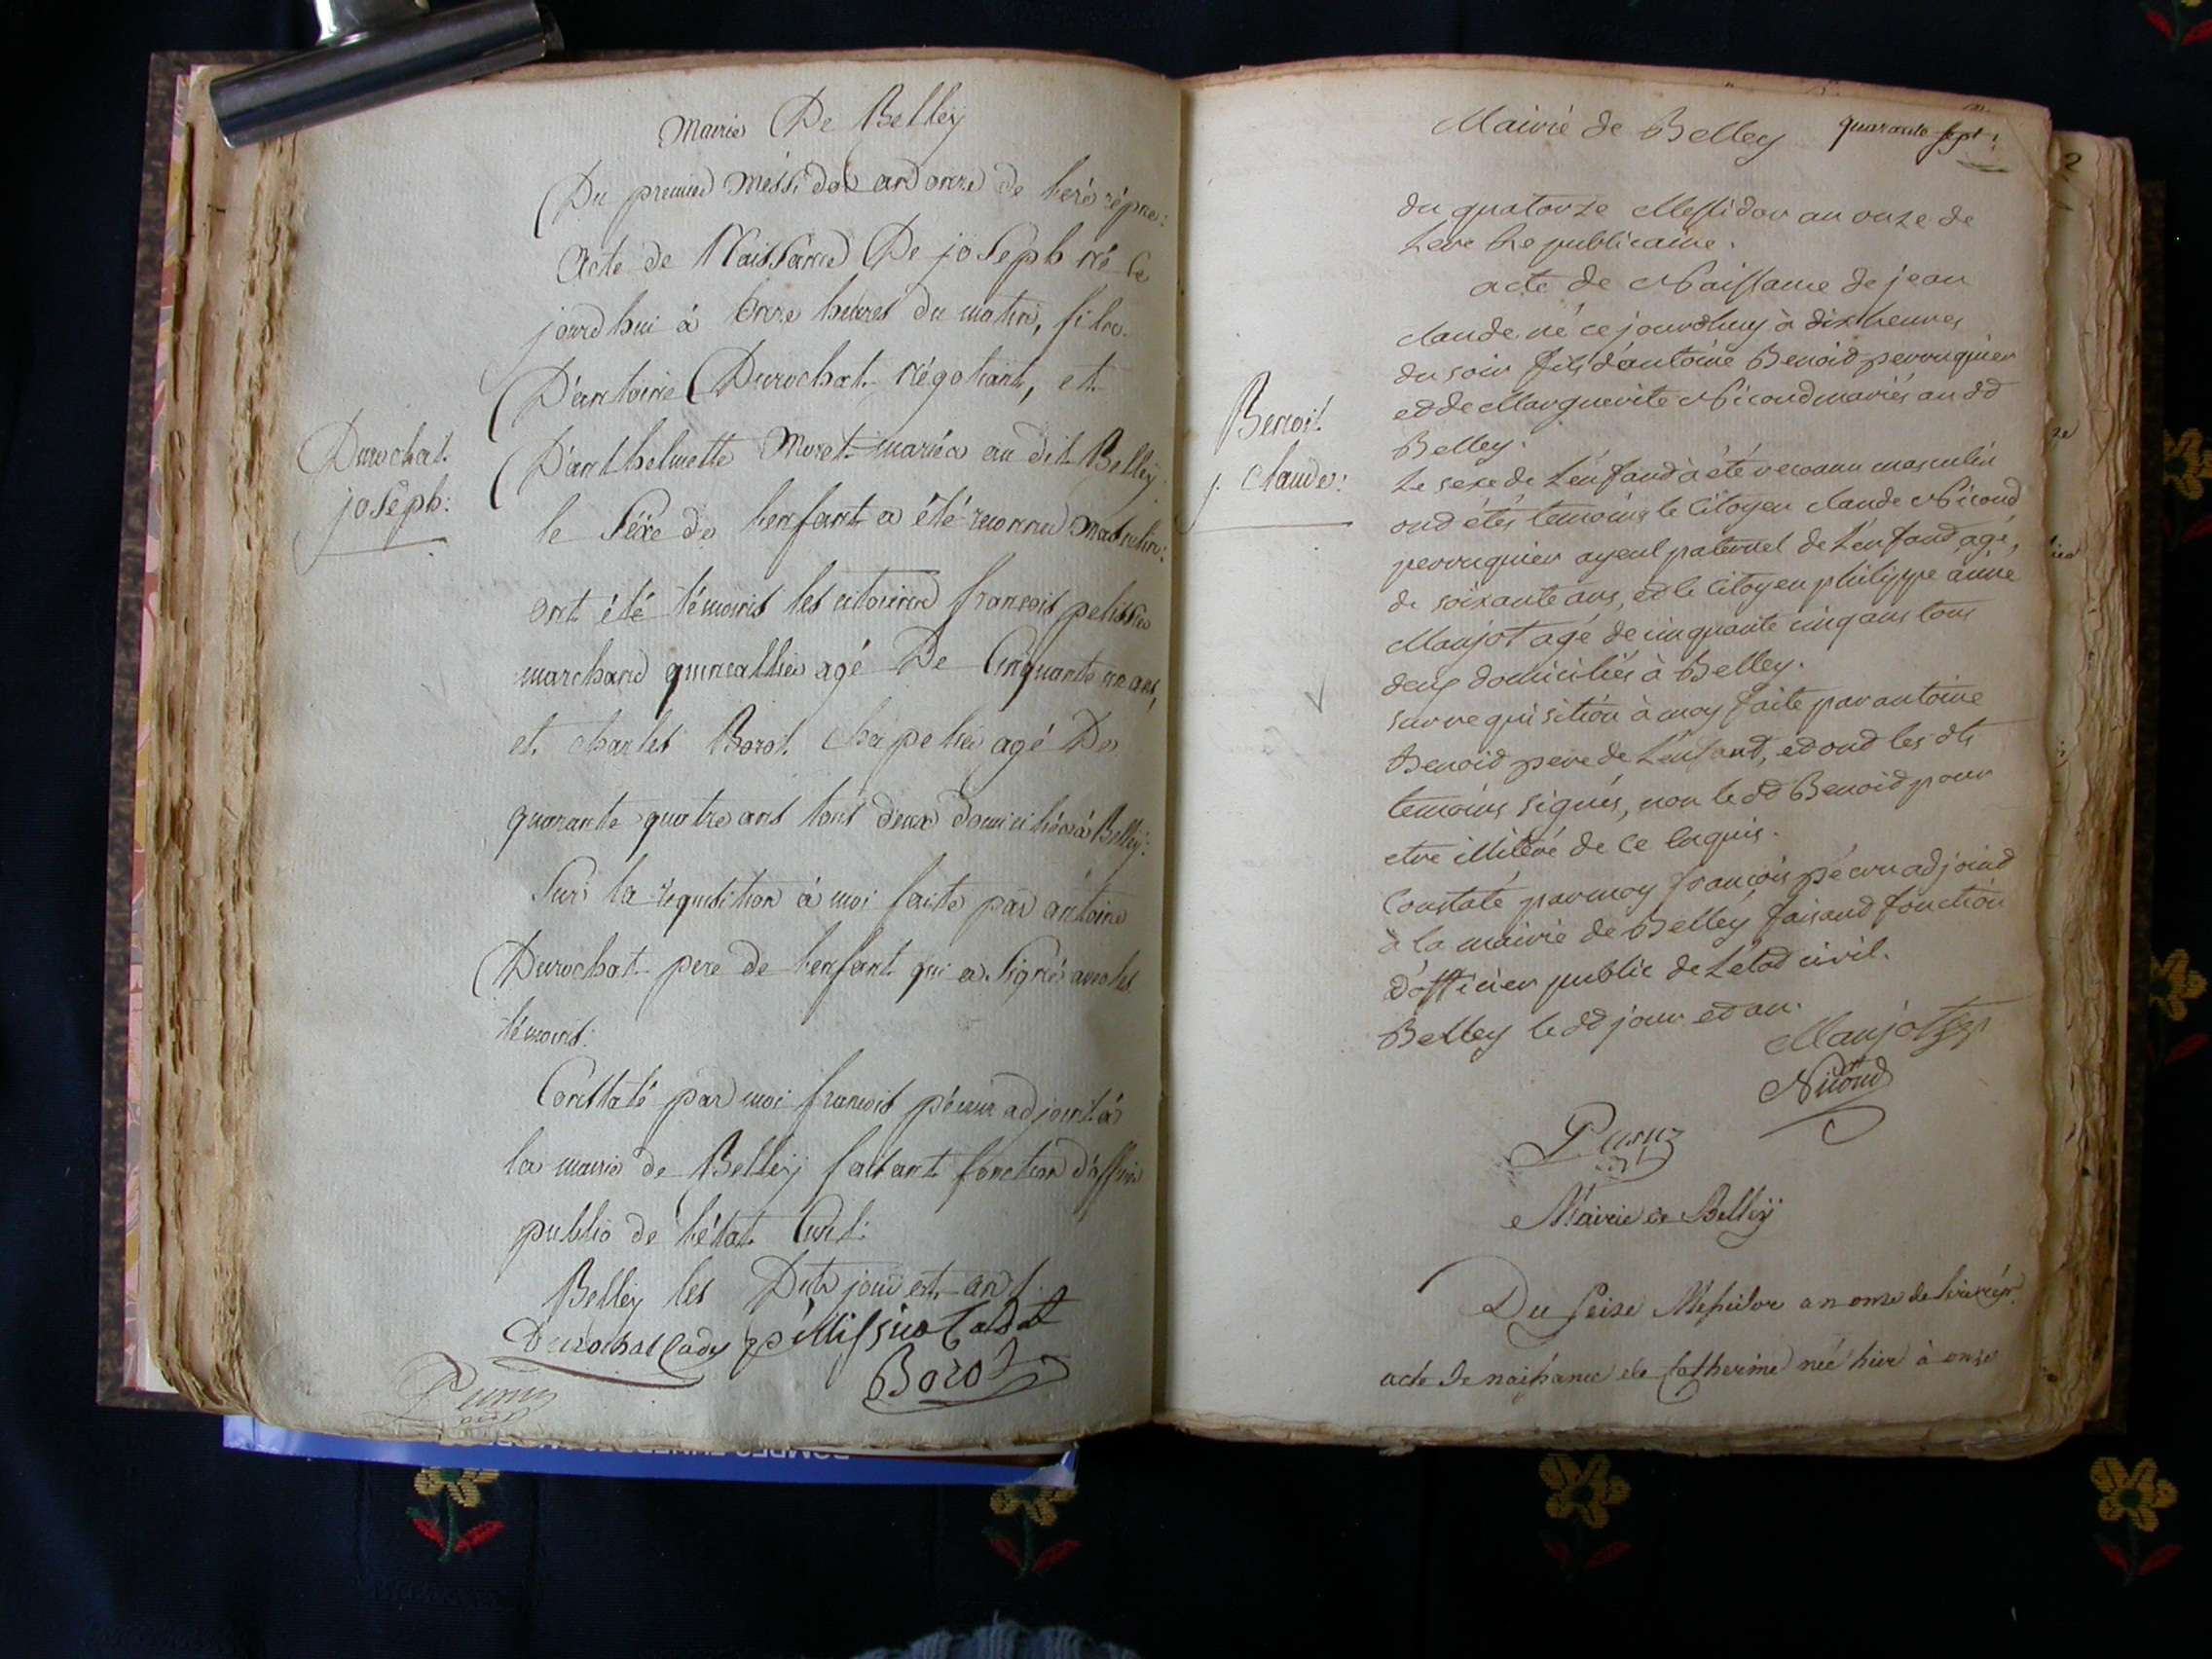 Mairie De Belley
Du premier Messidor an onze de l'ère répue:
Acte de Naissance De joseph né ce
jourdhui à onze heures du matin, fils
D'antoine Durochat négotiant, et
D'anthelmette Moret mariés au dit Belley
Durochat
joseph:
le sèxe de l'enfant a été reconnu masculin:
ont été témoins les citoiens françois pelissier
marchand quincallier agé De Cinquante un ans,
et charles Borot chapelier agé De
quarante quatre ans tous deux domiciliés à Belley:
Sur la réquisition à moi faite par antoine
Durochat pere de l'enfant qui a signé avec les
témoins:
Constaté par moi françois pécour adjoint à
la mairie de Belley faisant fonction d'officier
public de l'état Civil:
Belley les Dits jour et an
Durochat Cadet pèllissier Cadet
Borot
Mairie de Belley quarante sept:
du quatorze Messidor an onze de
L'ere Republicaine.
acte de Naissance de jean
claude né ce jourdhuy à dix heures
du soir fils d'antoine Benoid perruquier
ed de Marguerite Nicoud mariés au dd
Belley.
Benoit
j. Claude:
Le sexe de L'enfand à été reconnu masculin
ond étés temoins le Citoyen claude Nicoud
perruquier ayeul paternel de L'enfand agé,
de soixante ans, ed le Citoyen philippe aimé
Maujot agé de cinquante cinq ans tous
deux domiciliés à Belley.
sur requisition à moy faite par antoine
Benoid pere de L'enfand, ed ond les dts
temoins signés, non le dd Benoid pour
etre illiteré de ce enquis.
Constaté par moy françois pécour adjoind
à la mairie de Belley faisand fonction
d'officier public de L'etad civil.
Belley le dd jour ed an.
Maujot
Nicoud
Mairie de Belley
Du seize Messidor an onze de l'ere rép.
acte de naissance de Catherine née hier à onze